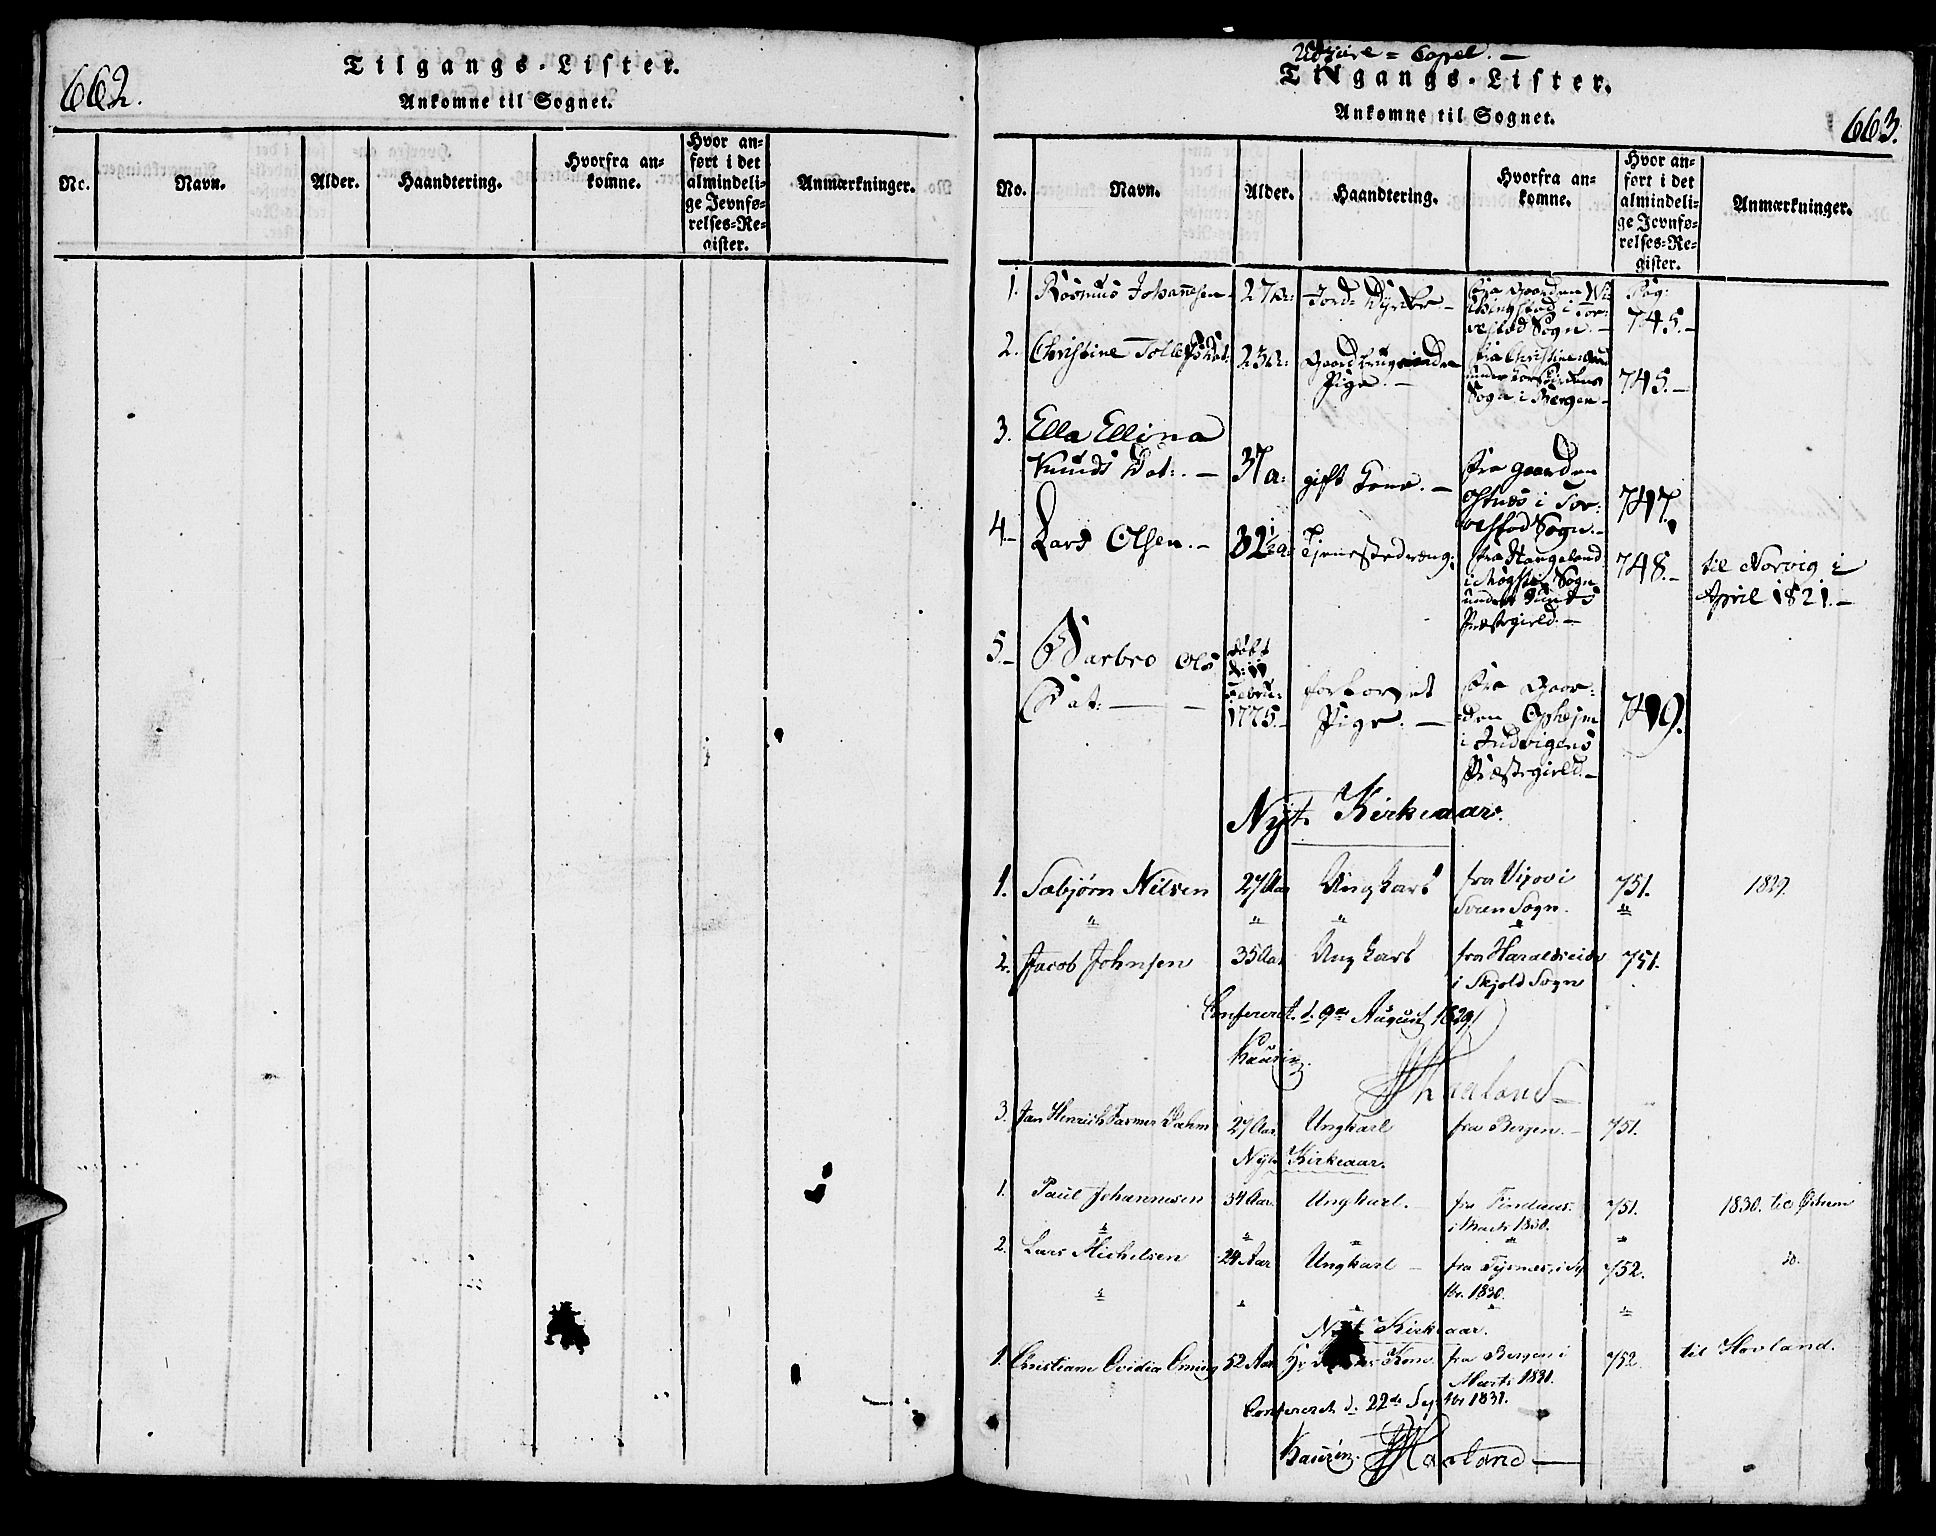 662.
Tilgangs-Lister.
Ankomne til Sognet.
No. Navn. Alder. Haandtering. Hvorfra an-
komne. Hvor an-
ført i det
almindeli-
ge Jevnfø-
relses-Re-
gister. Anmærkninger.
Capel. —
Tilgangs-Lister.
Ankomne til Sognet.
663.
No. Navn. Alder. Haandtering. Hvorfra an-
komne. Hvor an-
ført i det
almindeli-
ge Jevnfø-
relses-Re-
gister. Anmærkninger.
1. Rasmus Johannesen 27 Jord- Dyrker. — fra Gaarden
i Tor-
vestad Sogn. — Pag:
745. —
2. Christine Dat: 23 a: Gaardbrugende
Pige. — fra Christine
under Korskirkens
Sogn i Bergen — 745. —
3. Ella Ellina
Knuds Dat: — 37 a: gift Kone. — fra gaarden
i Tor-
vestad Sogn. — 747.
4. Lars Olsen. — 32½ a: Tjenestedreng. fra Hangeland
i Møgster Sogn
under Sunds
Præstegield. — 748. — til Norvig i
April 1821. —
5. Barbro Ols
Dat: — døbt
d: 11
Febru:
1775. — forkomet
Pige. — fra Gaar-
den Opheim
i Indvigens
Præstegield. — 749.
Nyt Kirkeaar.
1. Sæbjørn Nilsen 27 Aar Ungkarl fra
Sveen Sogn. 751. 1829.
2. Jacob Johnsen 35 Aar Ungkarl fra Haraldseide
i Skjold Sogn 751.
Confereret d. 9de August 1829.
Kaurin. Haaland
3. Jan Henrich Dahm 27 Aar Ungkarl fra Bergen. — 751.
Nyt Kirkeaar.
1. Paul Johannesen 34 Aar Ungkarl. — fra Findaas
i Marts 1830. 751. 1830. til
2. Lars Michelsen 24 Aar Ungkarl — fra Tysnæs, i Sep
tbr. 1830. 752. do.
Nyt Kirkeaar.
1. Christiane Ovidia 52 Aar Kone. fra Bergen i
Marts 1831. 752 til Hovland.
Confereret d. 22de Septbr 1831.
Kaurin. Haaland —